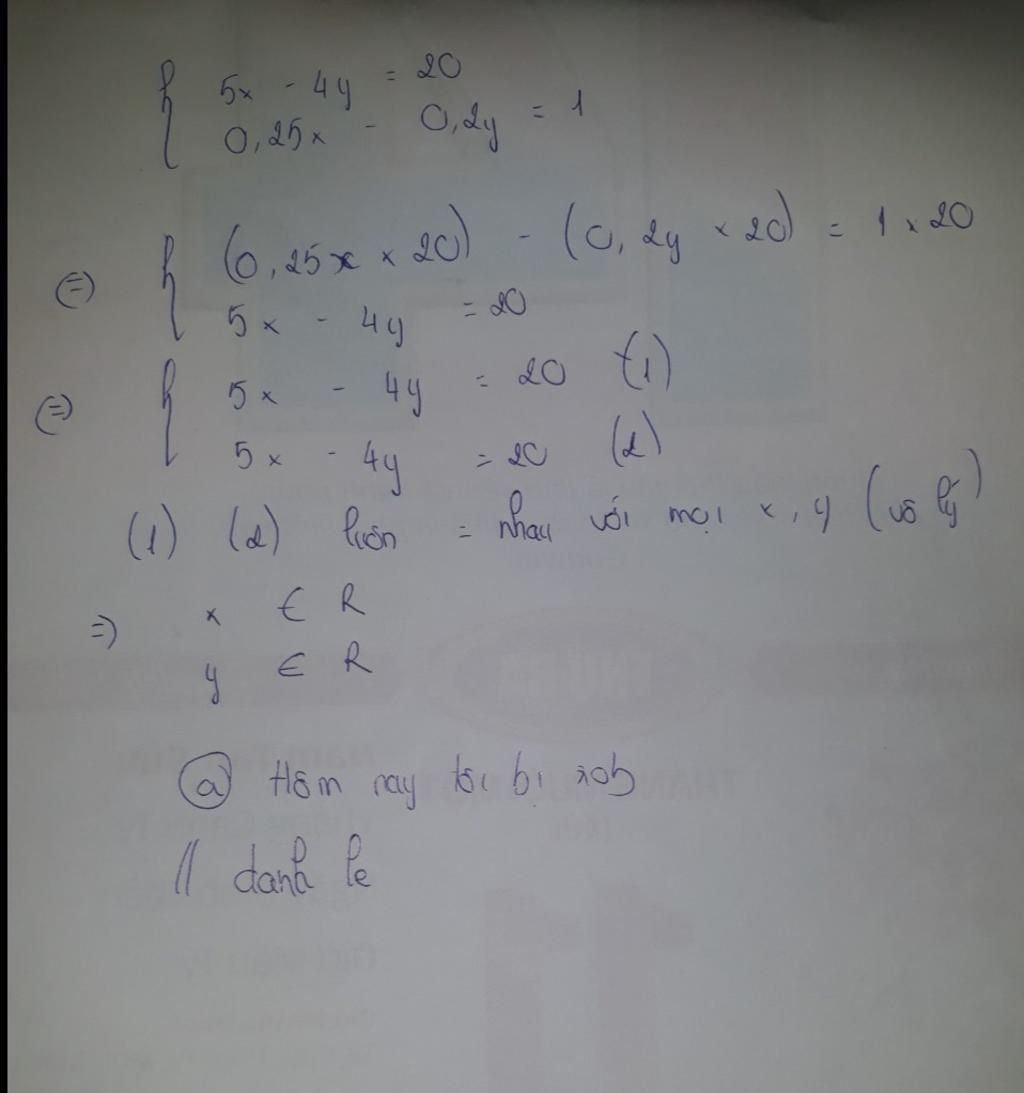 5x - 4y = 20
0,25x - 0,2y = 1
(=) (0,25x × 20) - (0,2y × 20) = 1 × 20
5x - 4y = 20
(=) 5x - 4y = 20 (1)
5x - 4y = 20 (2)
(1) (2) luôn = nhau với mọi x, y (vô lý)
=) x ∈ R
y ∈ R
a Hôm nay tôi bị
// danh